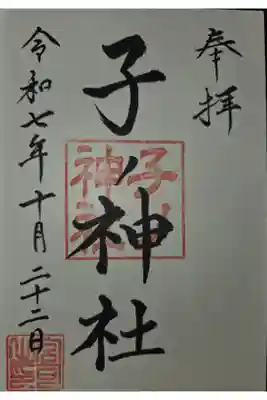 奉拝
子ノ神社
子ノ神社
令和七年十月二十二日